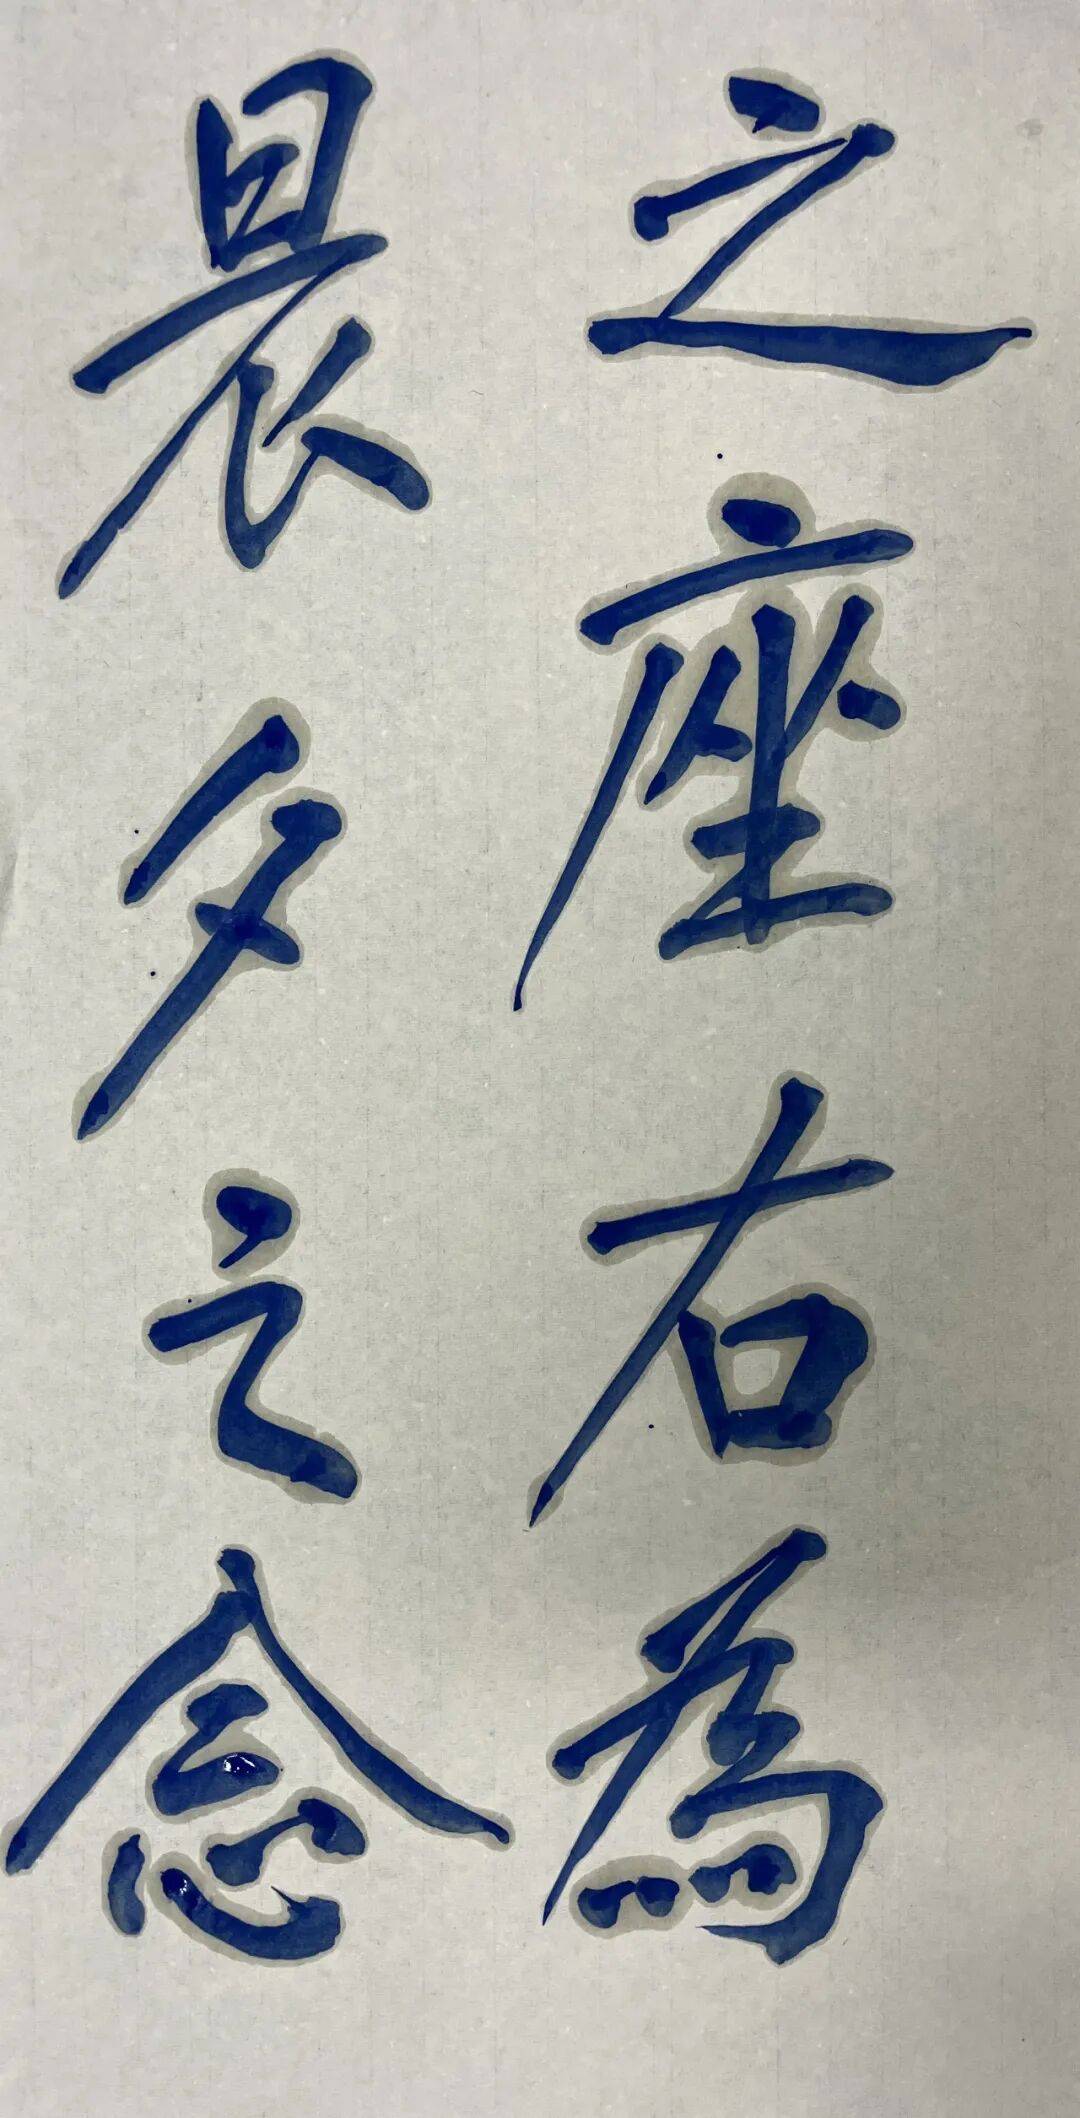 之座右為
晨夕之念